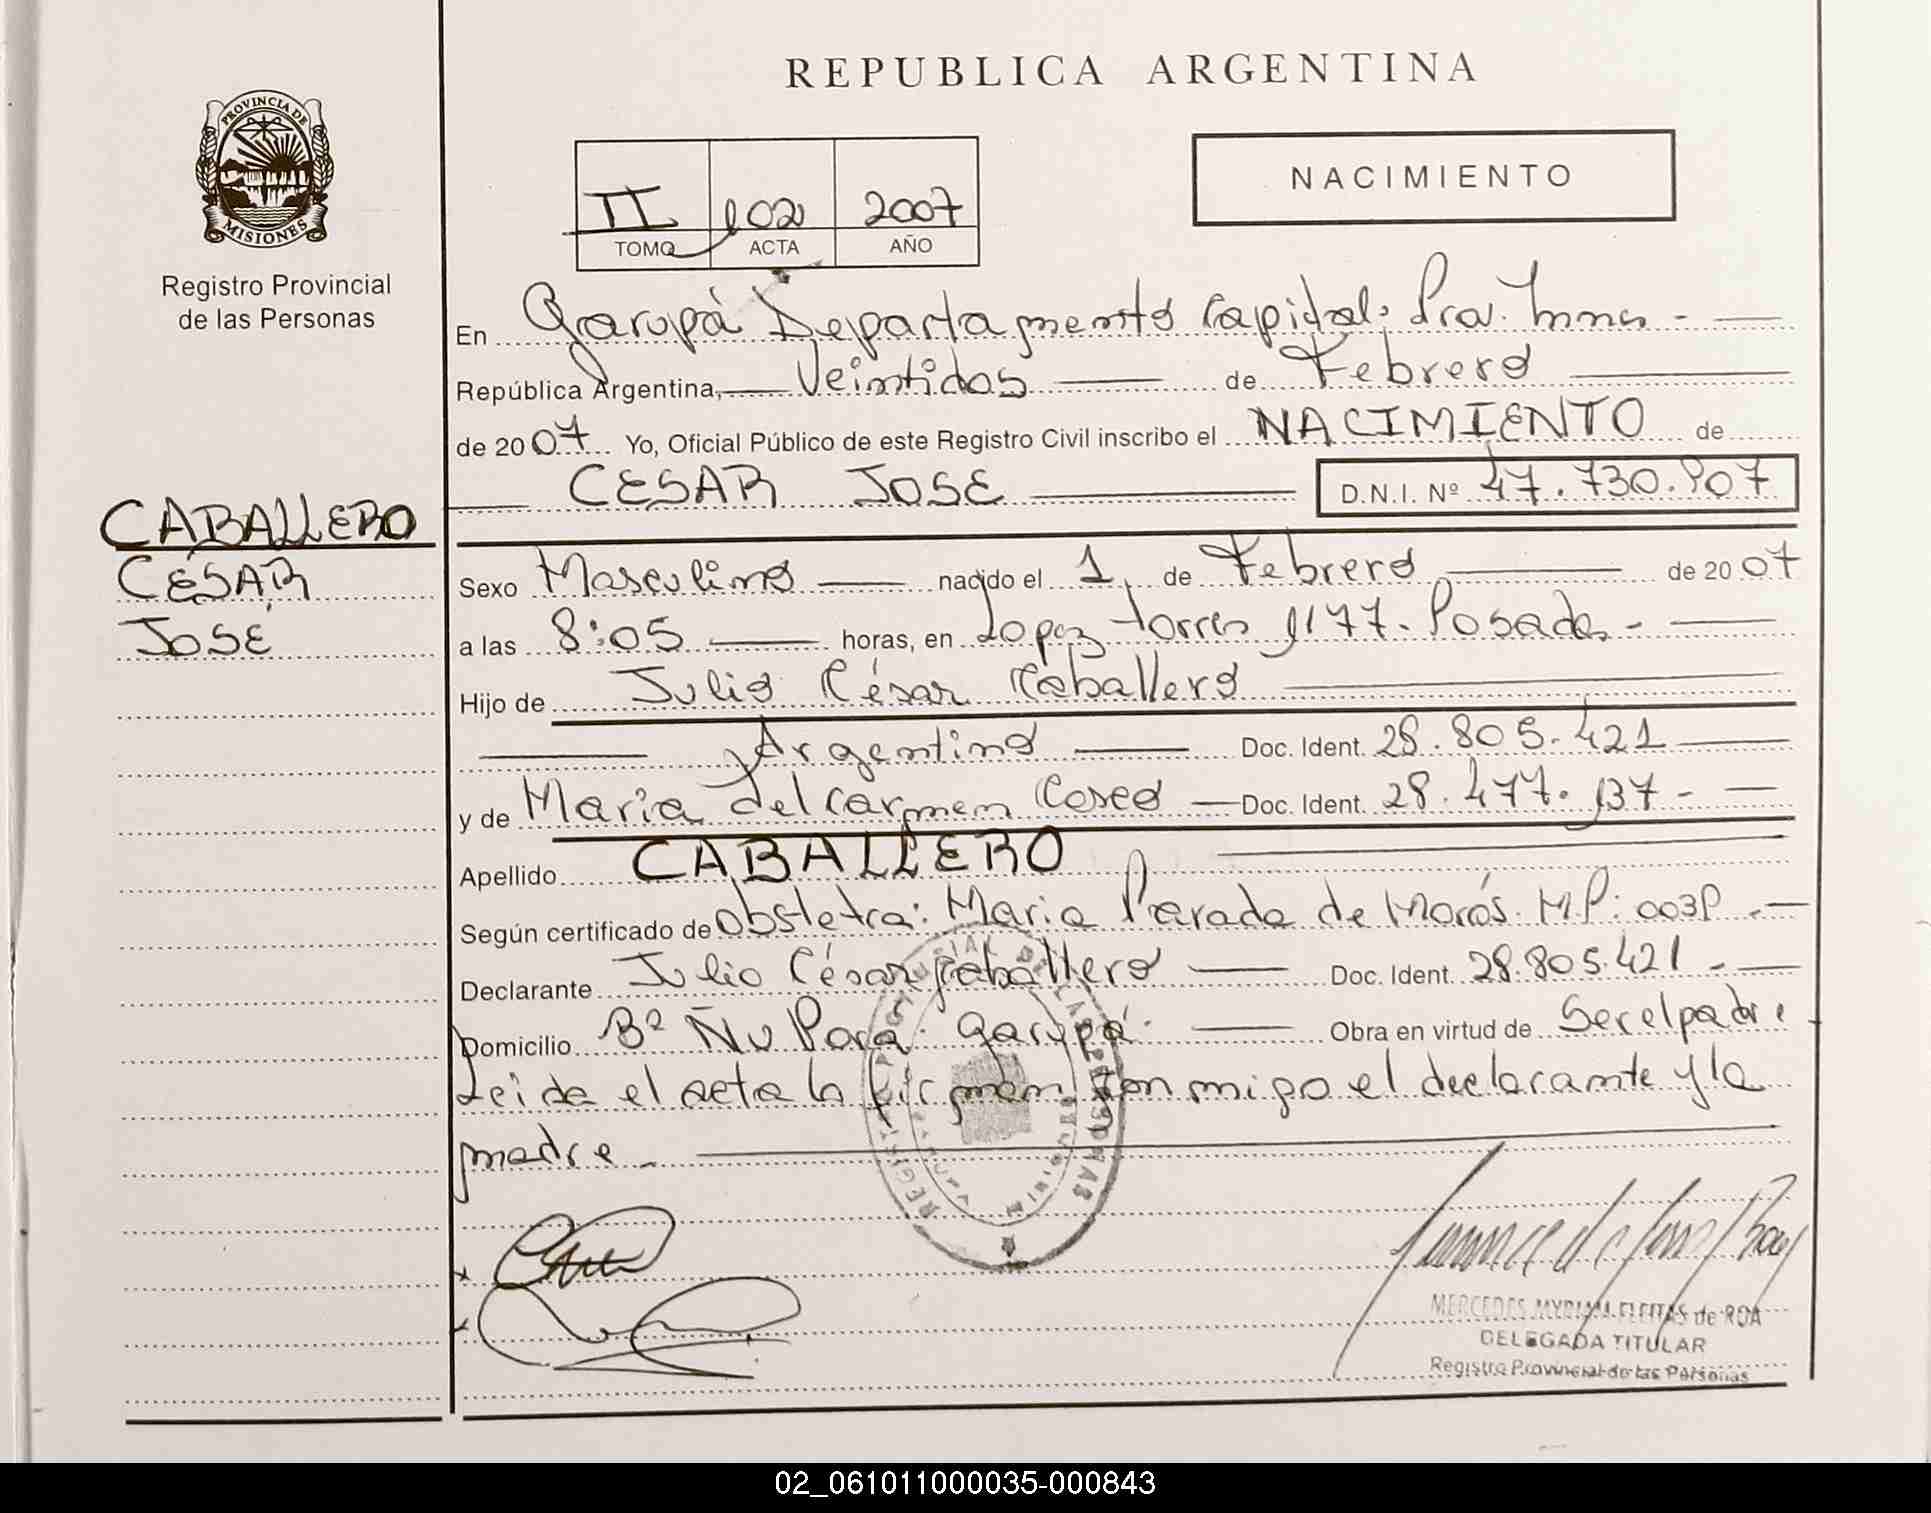 REPUBLICA ARGENTINA
PROVINCIA DE
MISIONES
Registro Provincial
de las Personas
II 102 2007
TOMO ACTA AÑO
NACIMIENTO
En Garupá Departamento Capital. Pcia. Mnes -
República Argentina, Veintidos de Febrero
de 2007. Yo, Oficial Público de este Registro Civil inscribo el NACIMIENTO de
CESAR JOSE D.N.I. Nº 47.730.907
CABALLERO
CÉSAR
JOSÉ
Sexo Masculino nacido el 1 de Febrero de 2007
a las 8:05 horas, en Lopez Torres 1177. Posadas -
Hijo de Julio César Caballero
Argentino Doc. Ident. 28.805.421
y de Maria del Carmen Doc. Ident. 28.477.137 -
Apellido CABALLERO
Según certificado de obstetra: Maria Parada de M.P:
Declarante Julio César Caballero Doc. Ident. 28.805.421 -
Domicilio Bº Ñu Pora. Garupá. Obra en virtud de Ser el padre
Leida el acta la firman conmigo el declarante y la
madre -
REGISTRO PROVINCIAL DE LAS PERSONAS
MERCEDES MYRIAM FLEITAS de ROA
DELEGADA TITULAR
Registro Provincial de las Personas
02_061011000035-000843